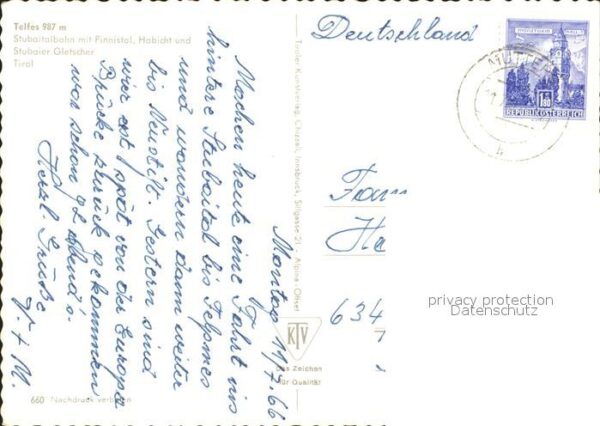 Telfes 987 m
Stubaitalbahn mit Pinnistal, Habicht und
Stubaier Gletscher
Tirol
Montag 11/7.66
Machen heute eine Fahrt ins
hintere Stubaital bis Telpmes
und wandern dann weiter
bis Neustift. Gestern sind
wir erst spät von der Europa
Brücke zurück gekommen
war schon 9h Abend's.
Herzl. Grüße
+ M.
660 Nachdruck verboten
Tiroler Kunstverlag Chizzali, Innsbruck, Sillgasse 21 - Alpina Offset
KTV
Das Zeichen
für Qualität
Deutschland
MUTTERS
REPUBLIK ÖSTERREICH
1.80
Fam
Ha
634
7
privacy protection
Datenschutz